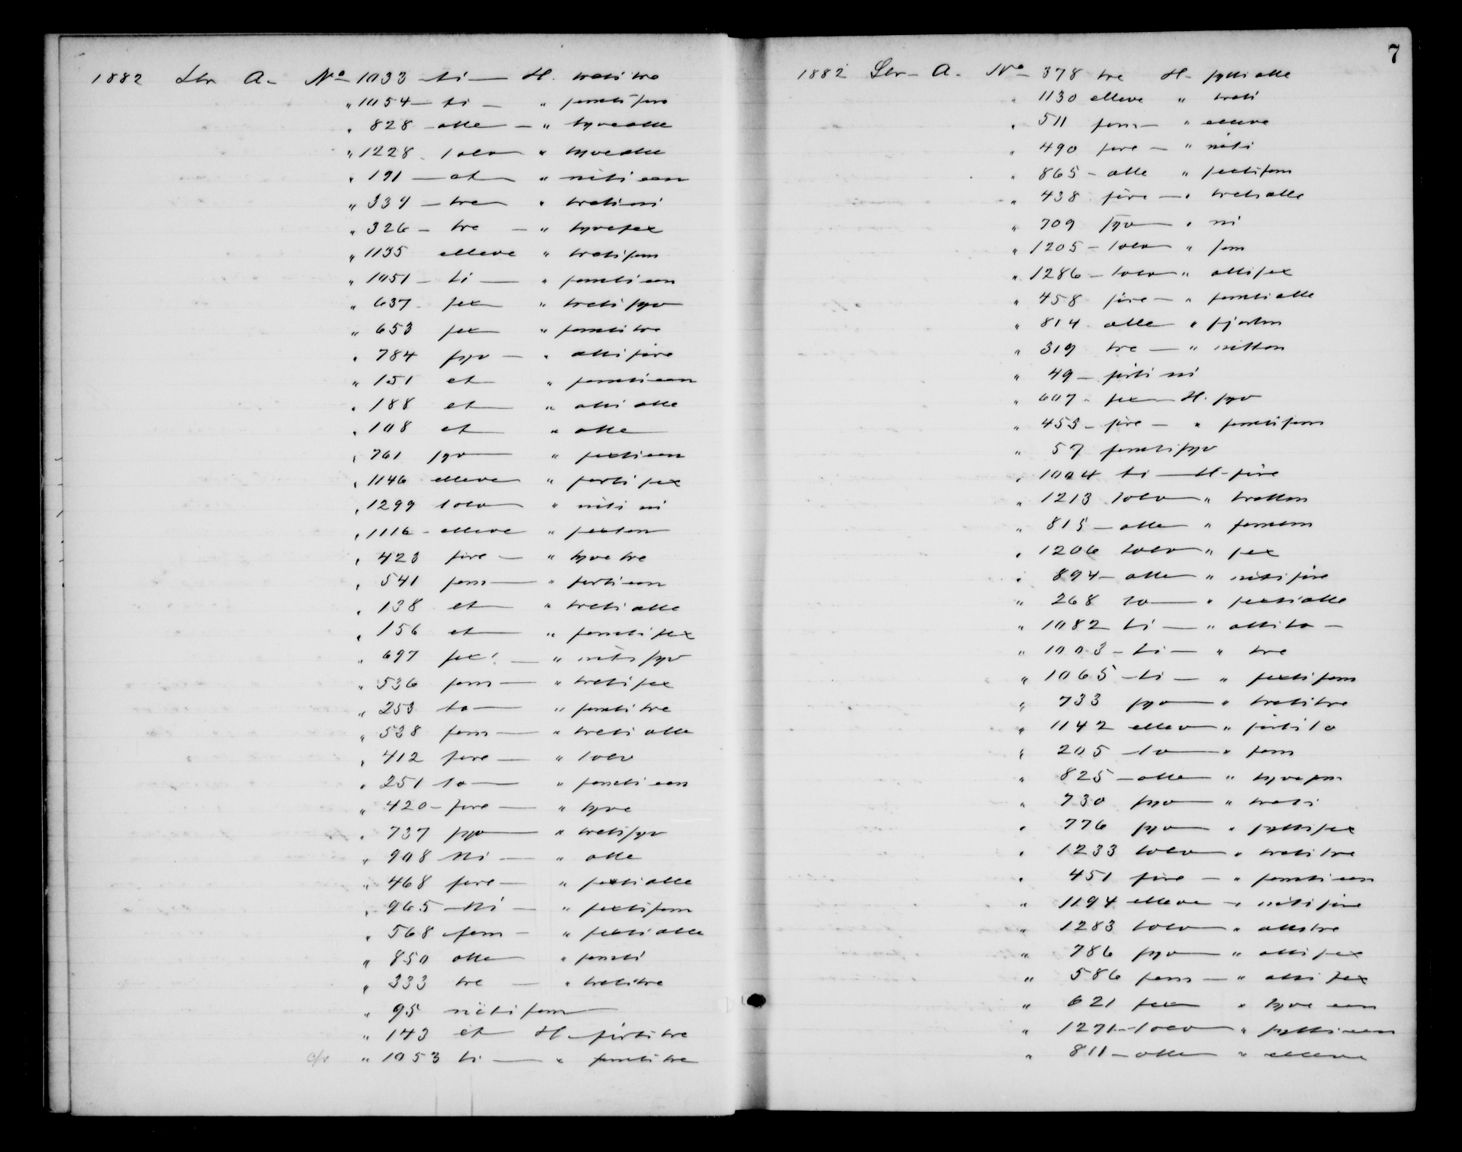 1882 Ltr A. No 1033 ti H. tretitre
" 1054 ti " femtifire
" 828 otte " tyveotte
" 1228 tolv " tyveotte
" 191 et " nitieen
" 339 tre " tretini
" 326 tre " tyvesex
" 1135 elleve " tretifem
" 1051 ti " femtieen
" 637 sex " tretisyv
" 653 sex " femtitre
" 784 syv " ottifire
" 151 et " femtieen
" 188 et " otti otte
" 108 et " otte
" 761 syv " sextieen
" 1146 elleve " førti sex
" 1299 tolv " niti ni
" 1116 elleve " sexten
" 423 fire " tyve tre
" 541 fem " førtieen
" 138 et " treti otte
" 156 et " femti sex
" 697 sex " niti syv
" 536 fem " tretisex
" 253 to " femtitre
" 538 fem " treti otte
" 412 fire " tolv
" 251 to " femti een
" 420 fire " tyve
" 737 syv " tretisyv
" 908 Ni " otte
" 468 fire " sextiotte
" 965 Ni " sextifem
" 568 fem " sexti otte
" 850 otte " femti
" 333 tre " tretitre
" 95 nitifem
" 143 et H førtitre
" 1053 ti " femtitre
7
1882 Ltr A. No 378 tre H. sytti otte
" 1130 elleve " treti
" 511 fem " elleve
" 490 fire " niti
" 865 otte " sextifem
" 438 fire " tretiotte
" 709 syv " ni
" 1205 tolv " fem
" 1286 tolv " ottisex
" 458 fire " femtiotte
" 814 otte " fjorten
" 319 tre " nitten
" 49 førti ni
" 607 sex H. syv
" 453 fire " femtitre
" 57 femtisyv
" 1004 ti H. fire
" 1213 tolv " tretten
" 815 otte " femten
" 1206 tolv " sex
" 894 otte " nitifire
" 268 to " sextiotte
" 1082 ti " otti to
" 1003 ti " tre
" 1065 ti " sextifem
" 733 syv " tretitre
" 1142 ellev " førti to
" 205 to " fem
" 825 otte " tyvefem
" 730 syv " treti
" 776 syv " syttisex
" 1233 tolv " tretitre
" 451 fire " femtieen
" 1194 elleve " nitifire
" 1283 tolv " ottitre
" 786 syv " ottisex
" 586 fem " otti sex
" 621 sex " tyve een
" 1271 tolv " syttieen
" 811 otte " elleve